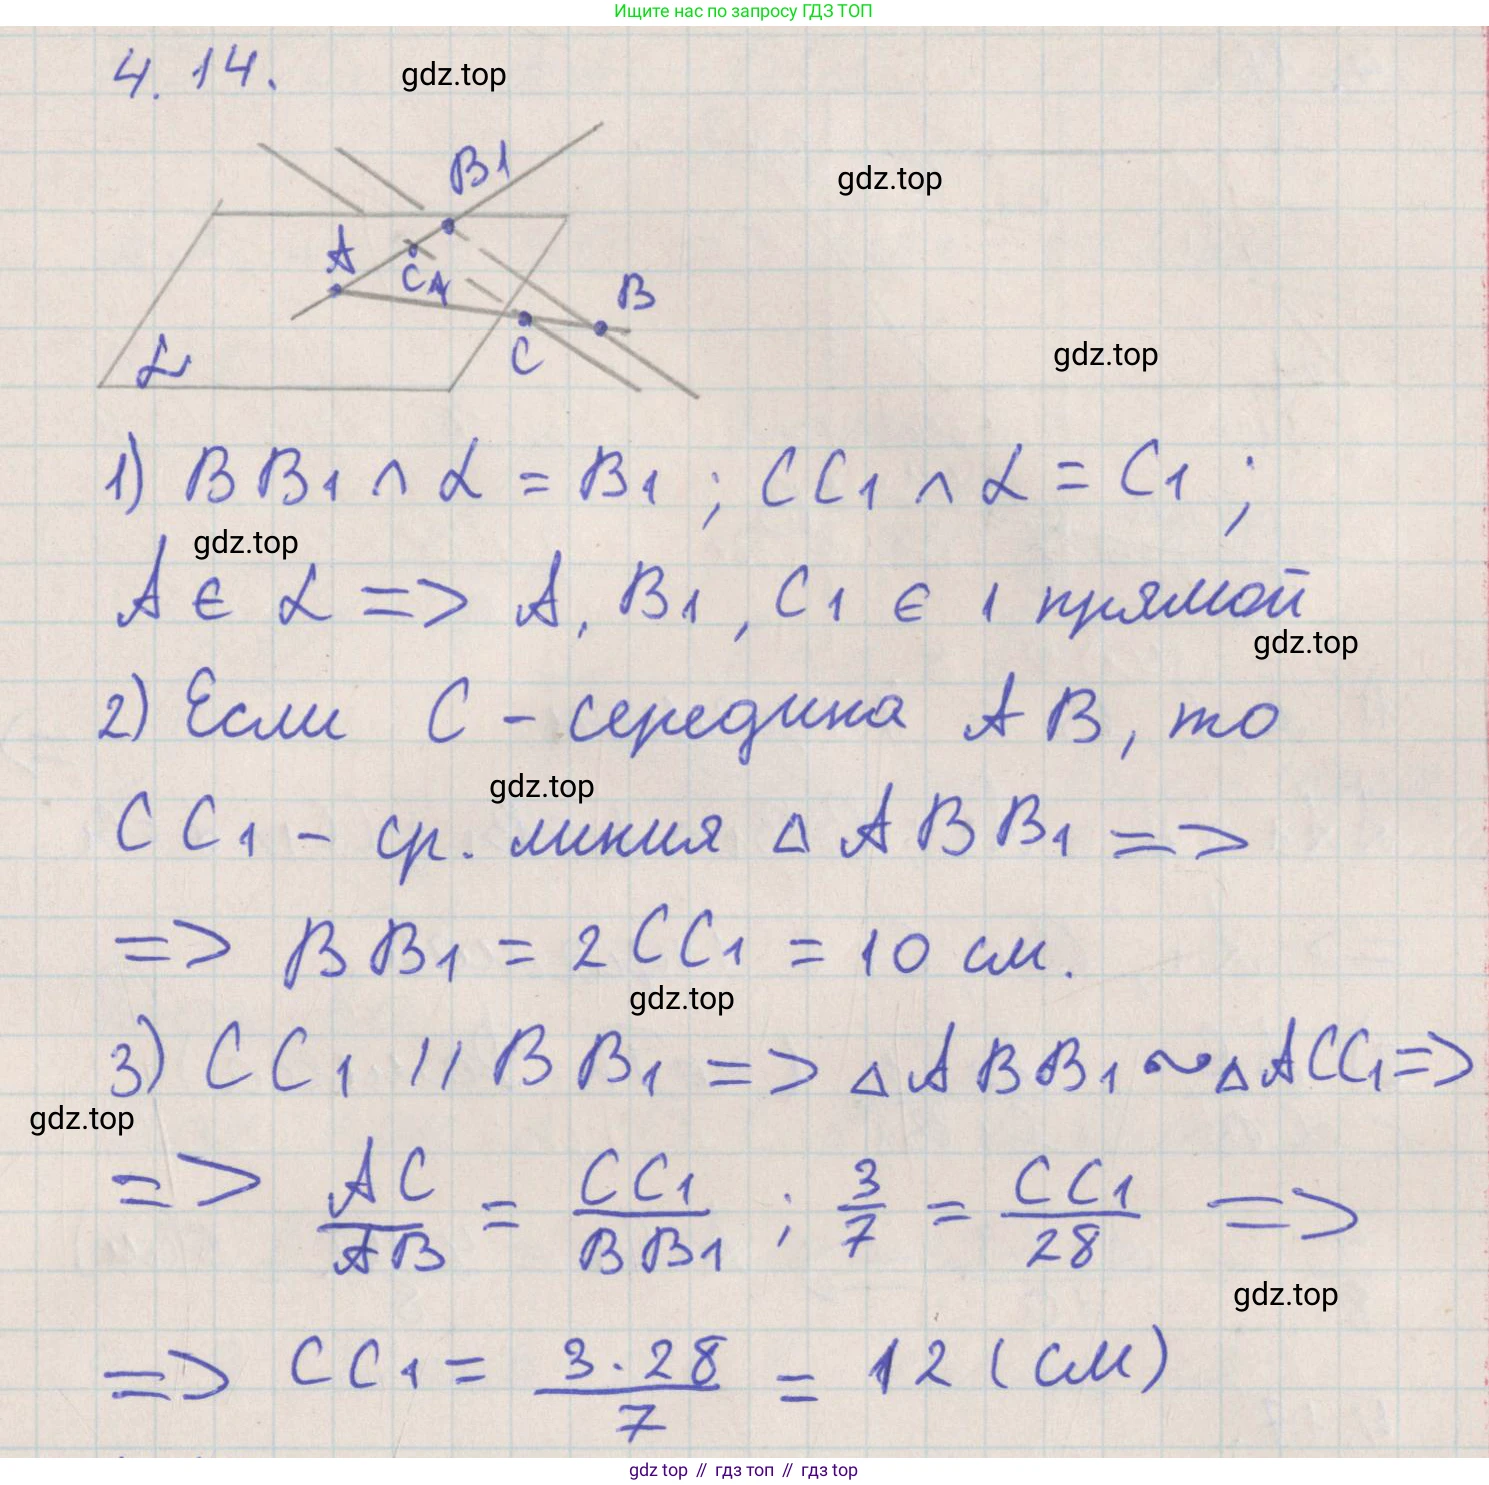 Ищите нас по запросу ГДЗ ТОП
4.14.
gdz.top
B1
gdz.top
A
C1
B
gdz.top
C
α
1) BB1 ∩ α = B1 ; CC1 ∩ α = C1 ;
gdz.top
A ∈ α => A, B1, C1 ∈ 1 прямой
gdz.top
2) Если C - середина AB, то
gdz.top
CC1 - ср. линия Δ ABB1 =>
=> BB1 = 2CC1 = 10 см.
gdz.top
3) CC1 // BB1 => Δ ABB1 ~ Δ ACC1 =>
gdz.top
=> AC/AB = CC1/BB1 ; 3/7 = CC1/28 =>
gdz.top
=> CC1 = 3·28/7 = 12 (см)
gdz top // гдз топ // gdz top